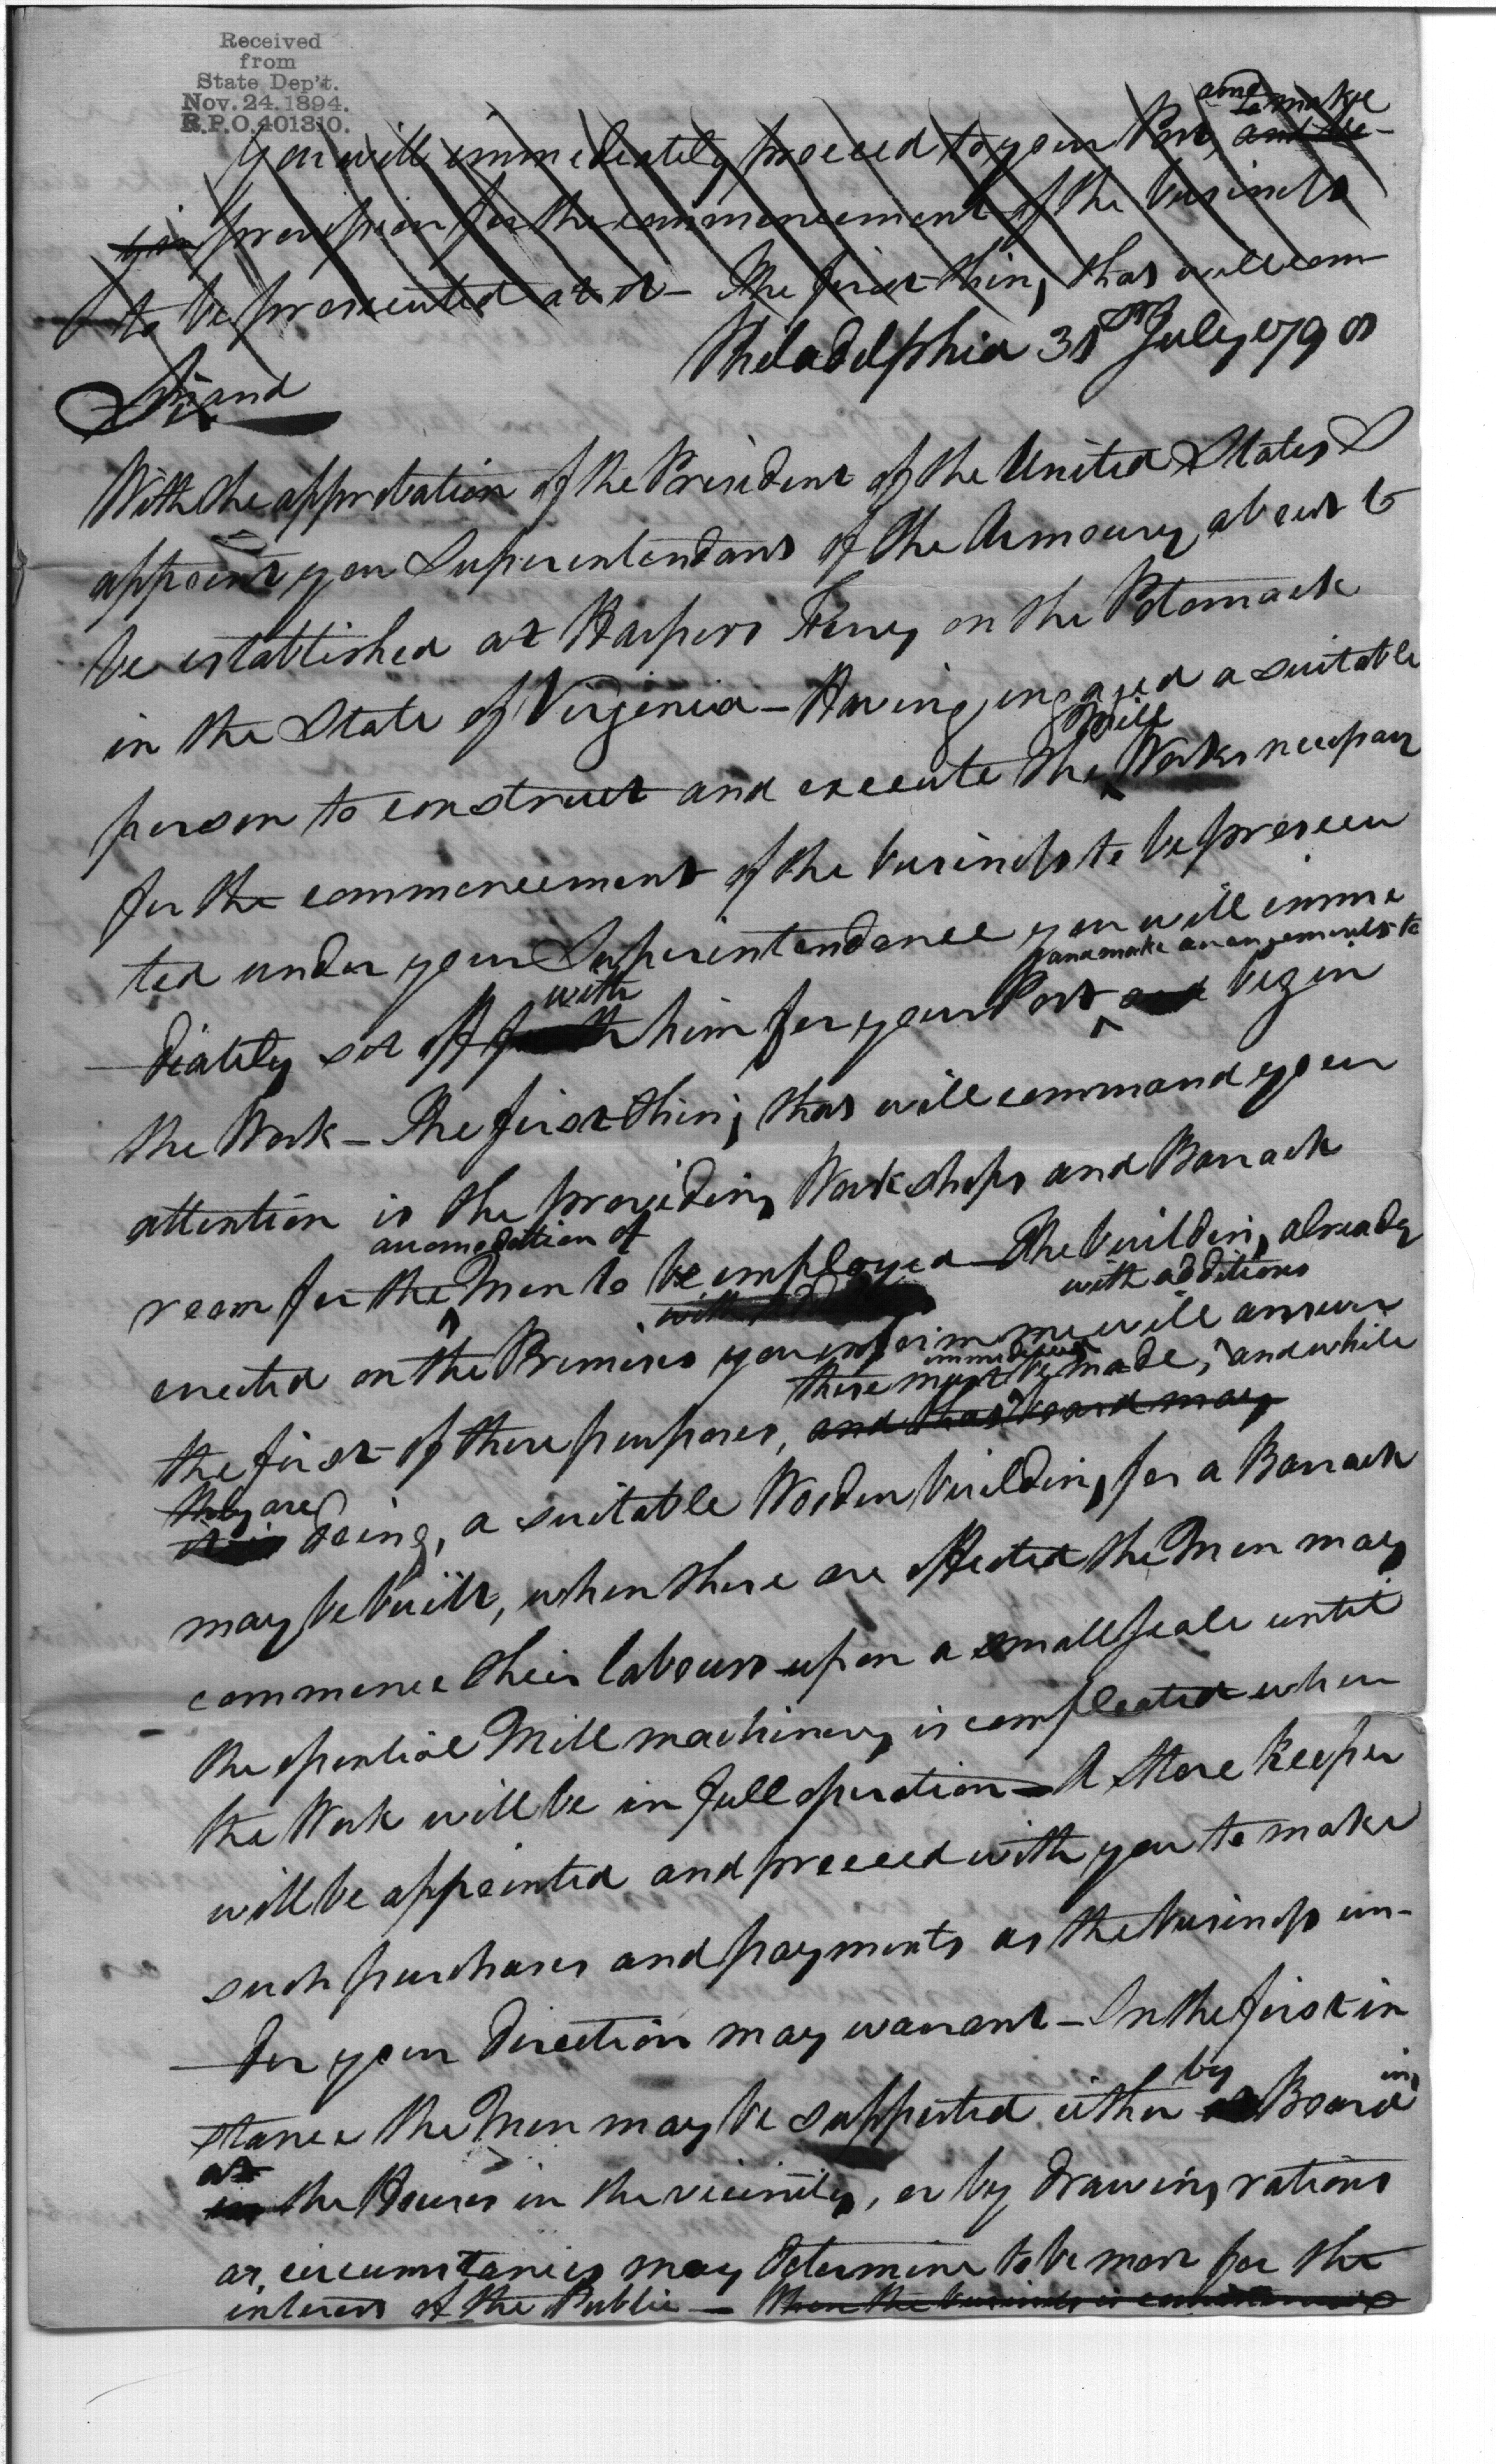 Received
from
State Dep't.
Nov. 24. 1894.
R.P.O. 401310.
and make
You will immediately proceed to your Post, and be-
gin provision for the commencement of the business
to be prosecuted at it - The first thing that will com
Philadelphia 31st July 1798
Sir and
With the approbation of the President of the United States I
appoint you Superintendant of the Armoury about to
be established at Harpers Ferry on the Potomack
in the State of Virginia - Having engaged a suitable
Mill
person to construct and execute the Works necessary
for the commencement of the business to be prosecu
ted under your Superintendance you will imme
and make arrangements to
with
diately set off him for your Post and begin
the Work - The first thing that will command your
attention is the providing Workshops and Barrack
accomodation of
room for the Men to be employed - The building already
with additions
erected on the Premises you inform me will answer
immediately
these must be made, and while
the first of these purposes, and that board may
they are
it is doing, a suitable Wooden building for a Barrack
may be built, when these are effected the Men may
commence their labours upon a small scale until
the essential Mill machinery is compleated when
the Work will be in full operation - A Store keeper
will be appointed and proceed with you to make
such purchases and payments as the business un-
der your direction may warrant - In the first in
stance the Men may be supported either by Boarding
at
in the Houses in the vicinity, or by drawing rations
as circumstances may determine to be most for the
interest of the Public - When the business is